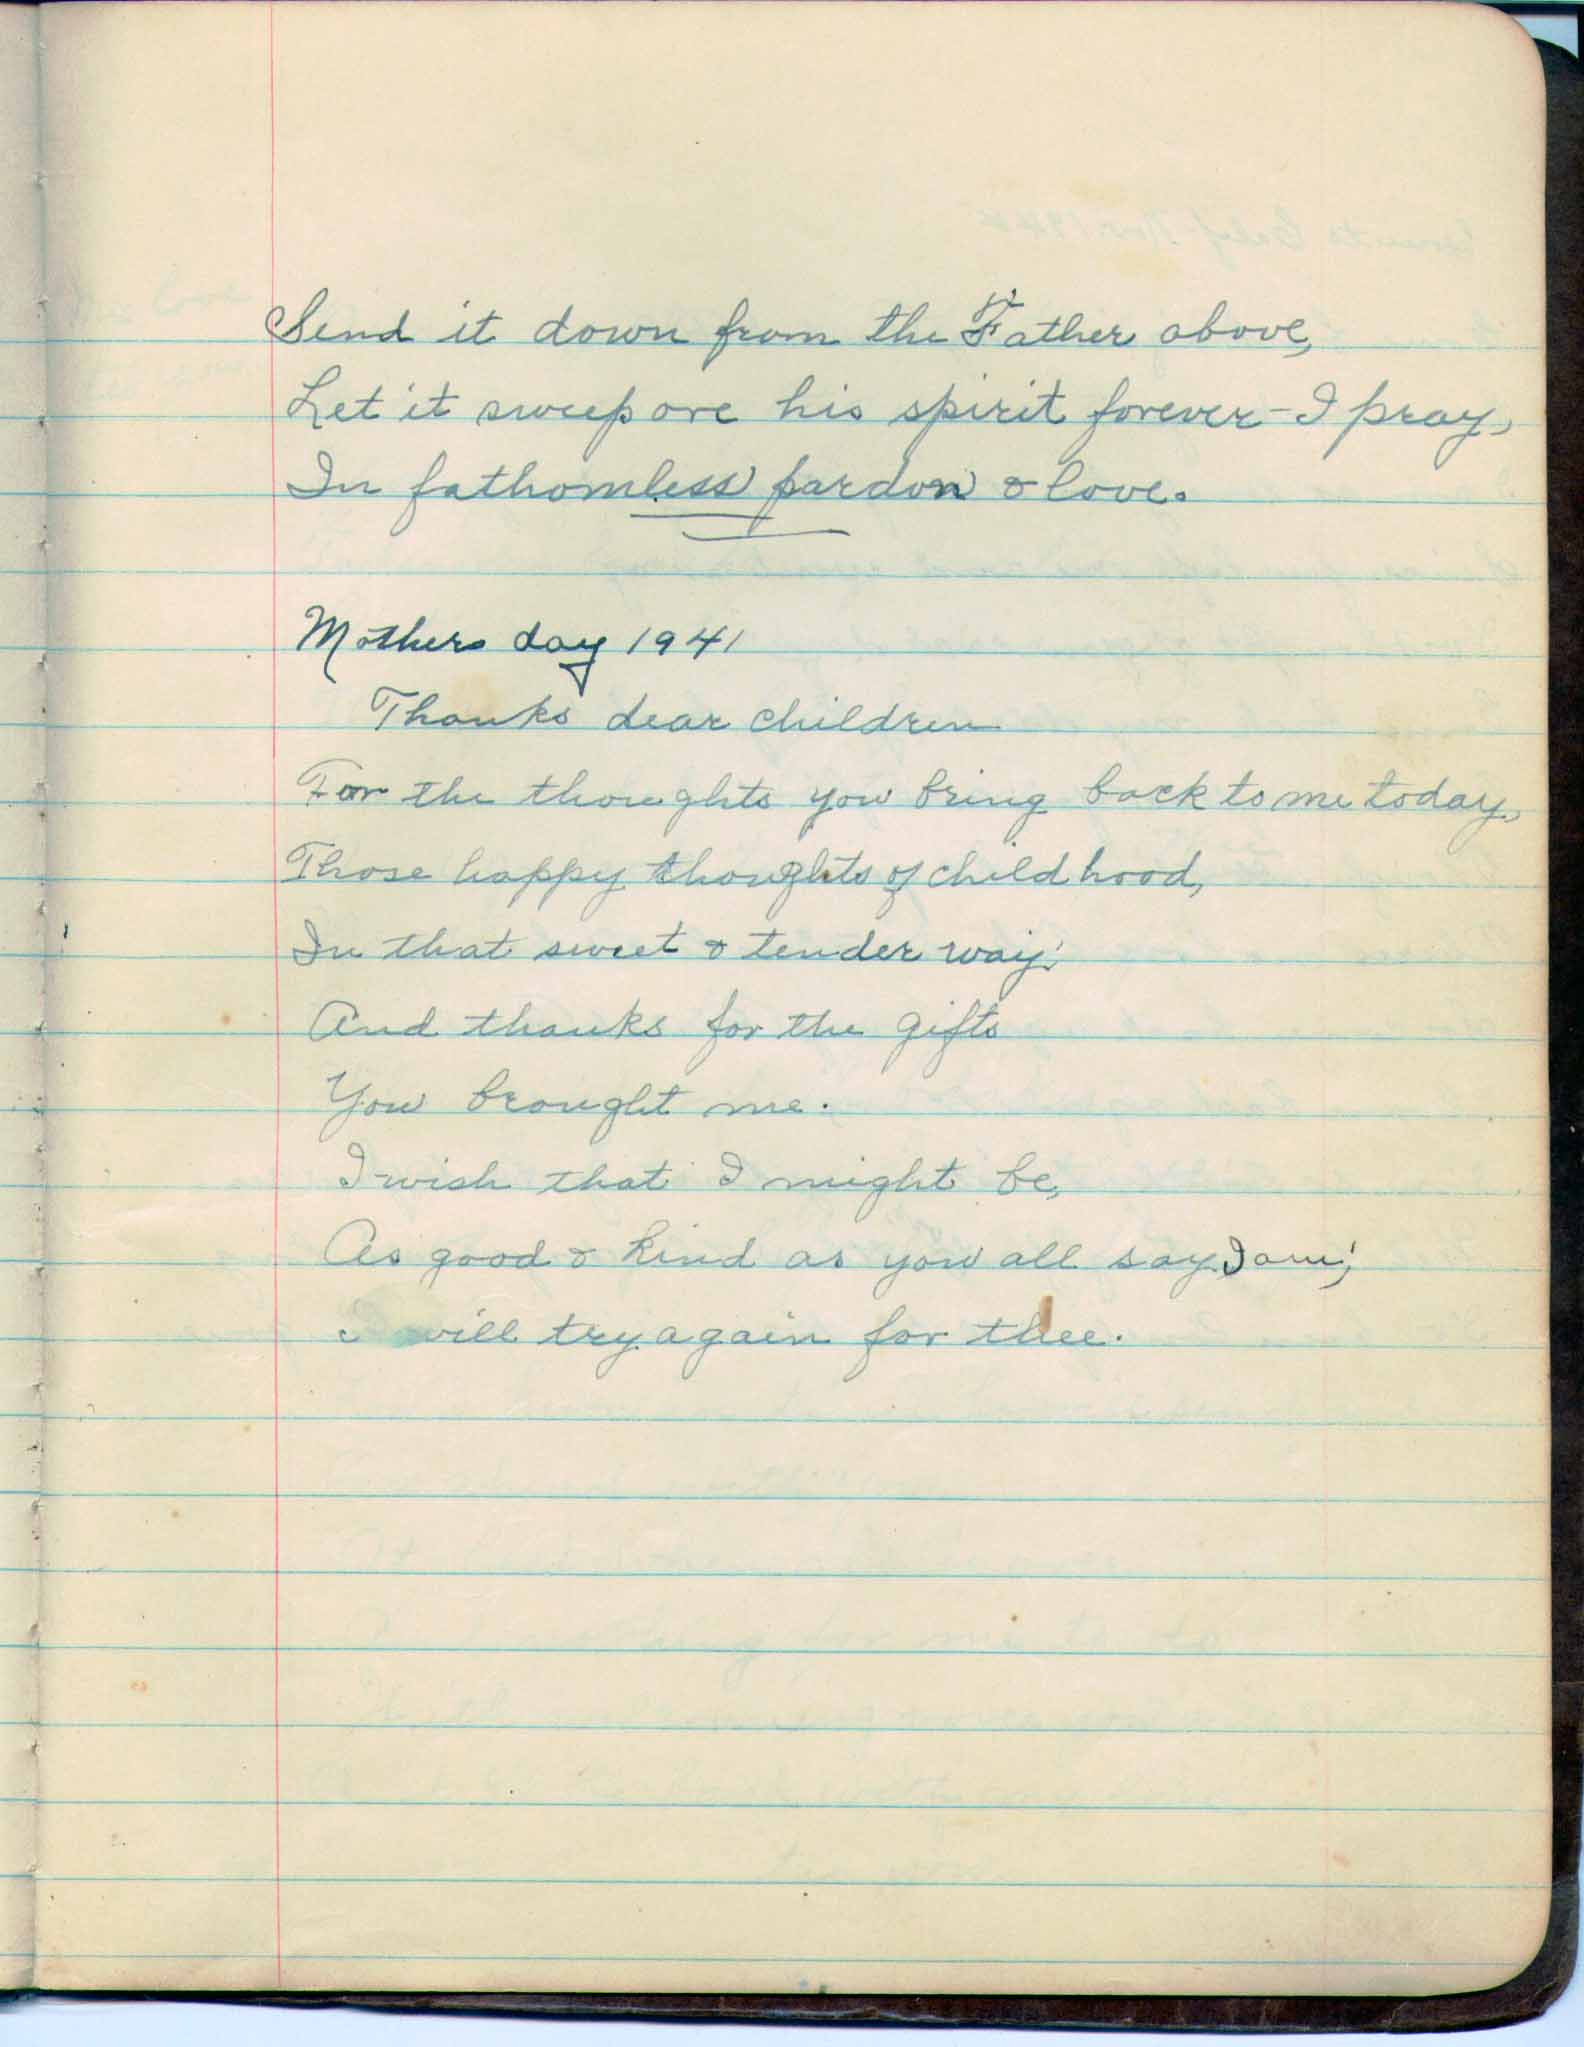 Send it down from the Father above,
Let it sweep ore his spirit forever - I pray,
In fathomless pardon & love.
Mothers day 1941
Thanks dear children
For the thoughts you bring back to me today,
Those happy thoughts of childhood,
In that sweet & tender way;
And thanks for the gifts
You brought me.
I wish that I might be,
As good & kind as you all say I am;
I will try again for thee.